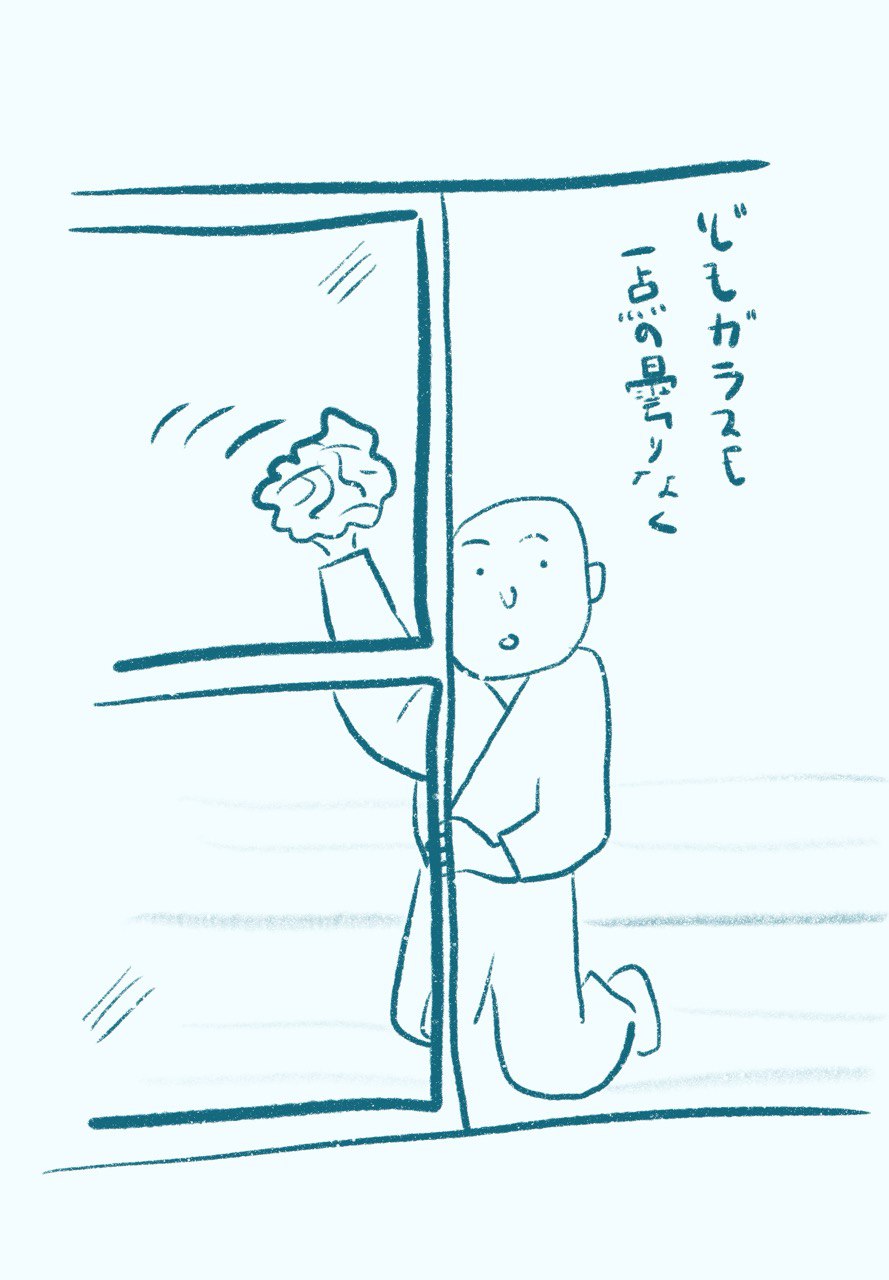 心もガラスも
一点の曇りなく